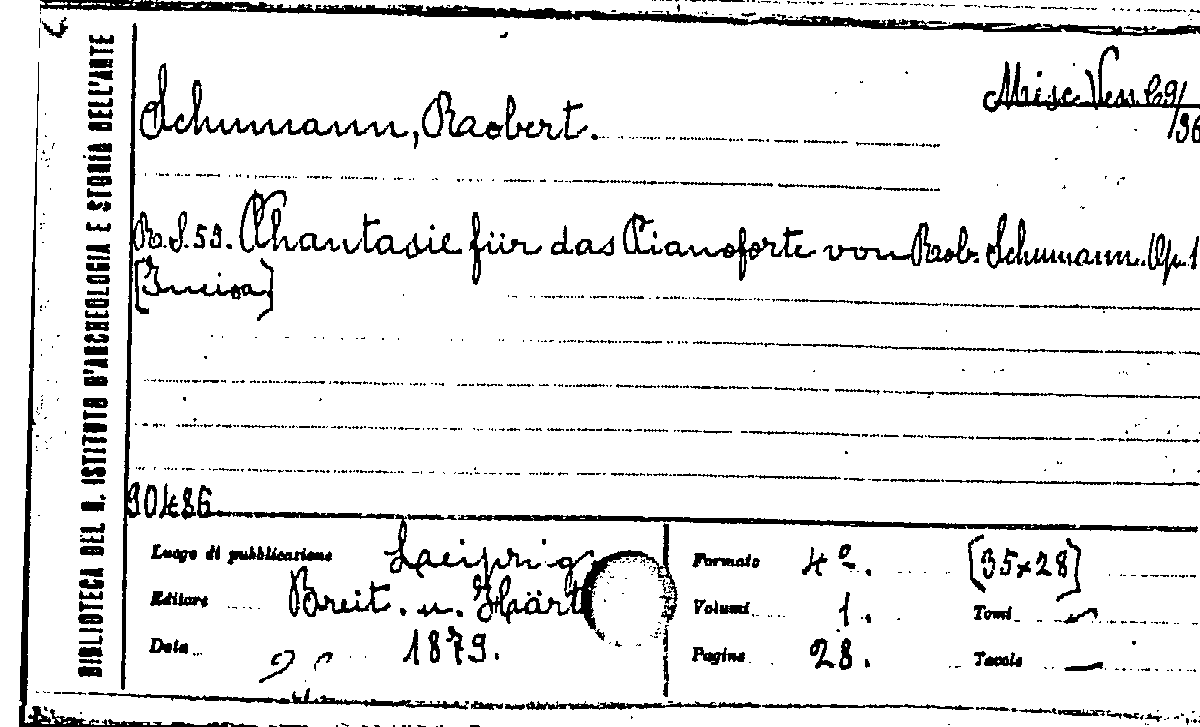 BIBLIOTECA DEL R. ISTITUTO D'ARCHEOLOGIA E STORIA DELL'ARTE
Misc. Vess. 69/
96
Schumann, Robert.
R. S. 59. Phantasie für das Pianoforte von Rob. Schumann. Op. 1
[Incisa]
90486
Luogo di pubblicazione Leipzig
Formato 4º. [35×28]
Editore Breit. u. Härt
Volumi 1. Tomi —
Data 1879.
Pagine 28. Tavole —